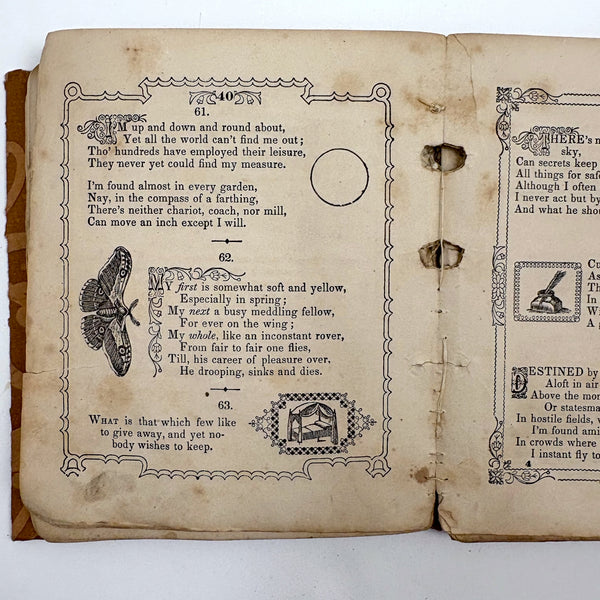 40
61.
I'M up and down and round about,
Yet all the world can't find me out;
Tho' hundreds have employed their leisure,
They never yet could find my measure.
I'm found almost in every garden,
Nay, in the compass of a farthing,
There's neither chariot, coach, nor mill,
Can move an inch except I will.
62.
My first is somewhat soft and yellow,
Especially in spring;
My next a busy meddling fellow,
For ever on the wing;
My whole, like an inconstant rover,
From fair to fair one flies,
Till, his career of pleasure over,
He drooping, sinks and dies.
63.
WHAT is that which few like
to give away, and yet no-
body wishes to keep.
THERE'S n
sky,
Can secrets keep
All things for safe
Although I often
I never act but by
And what he shou
Cu
As
Th
In
Wi
A g
DESTINED by
Aloft in air
Above the mo
Or statesma
In hostile fields, w
I'm found ami
In crowds where
I instant fly to
4